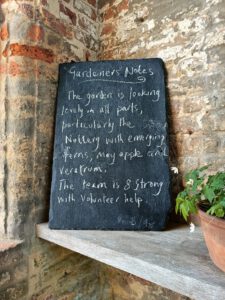 Gardeners Notes
The garden is looking
lovely in all parts,
particularly the
Nuttery with emerging
ferns, may apple and
veratrum.
The team is 8 strong
with volunteer help.